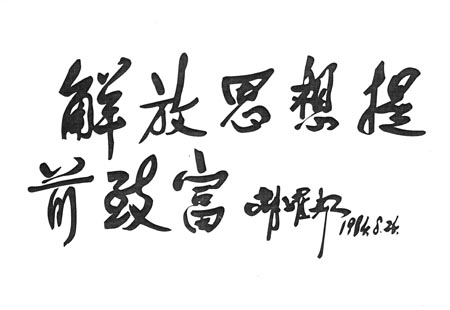 解放思想提
前致富 胡耀邦 1984.8.26.